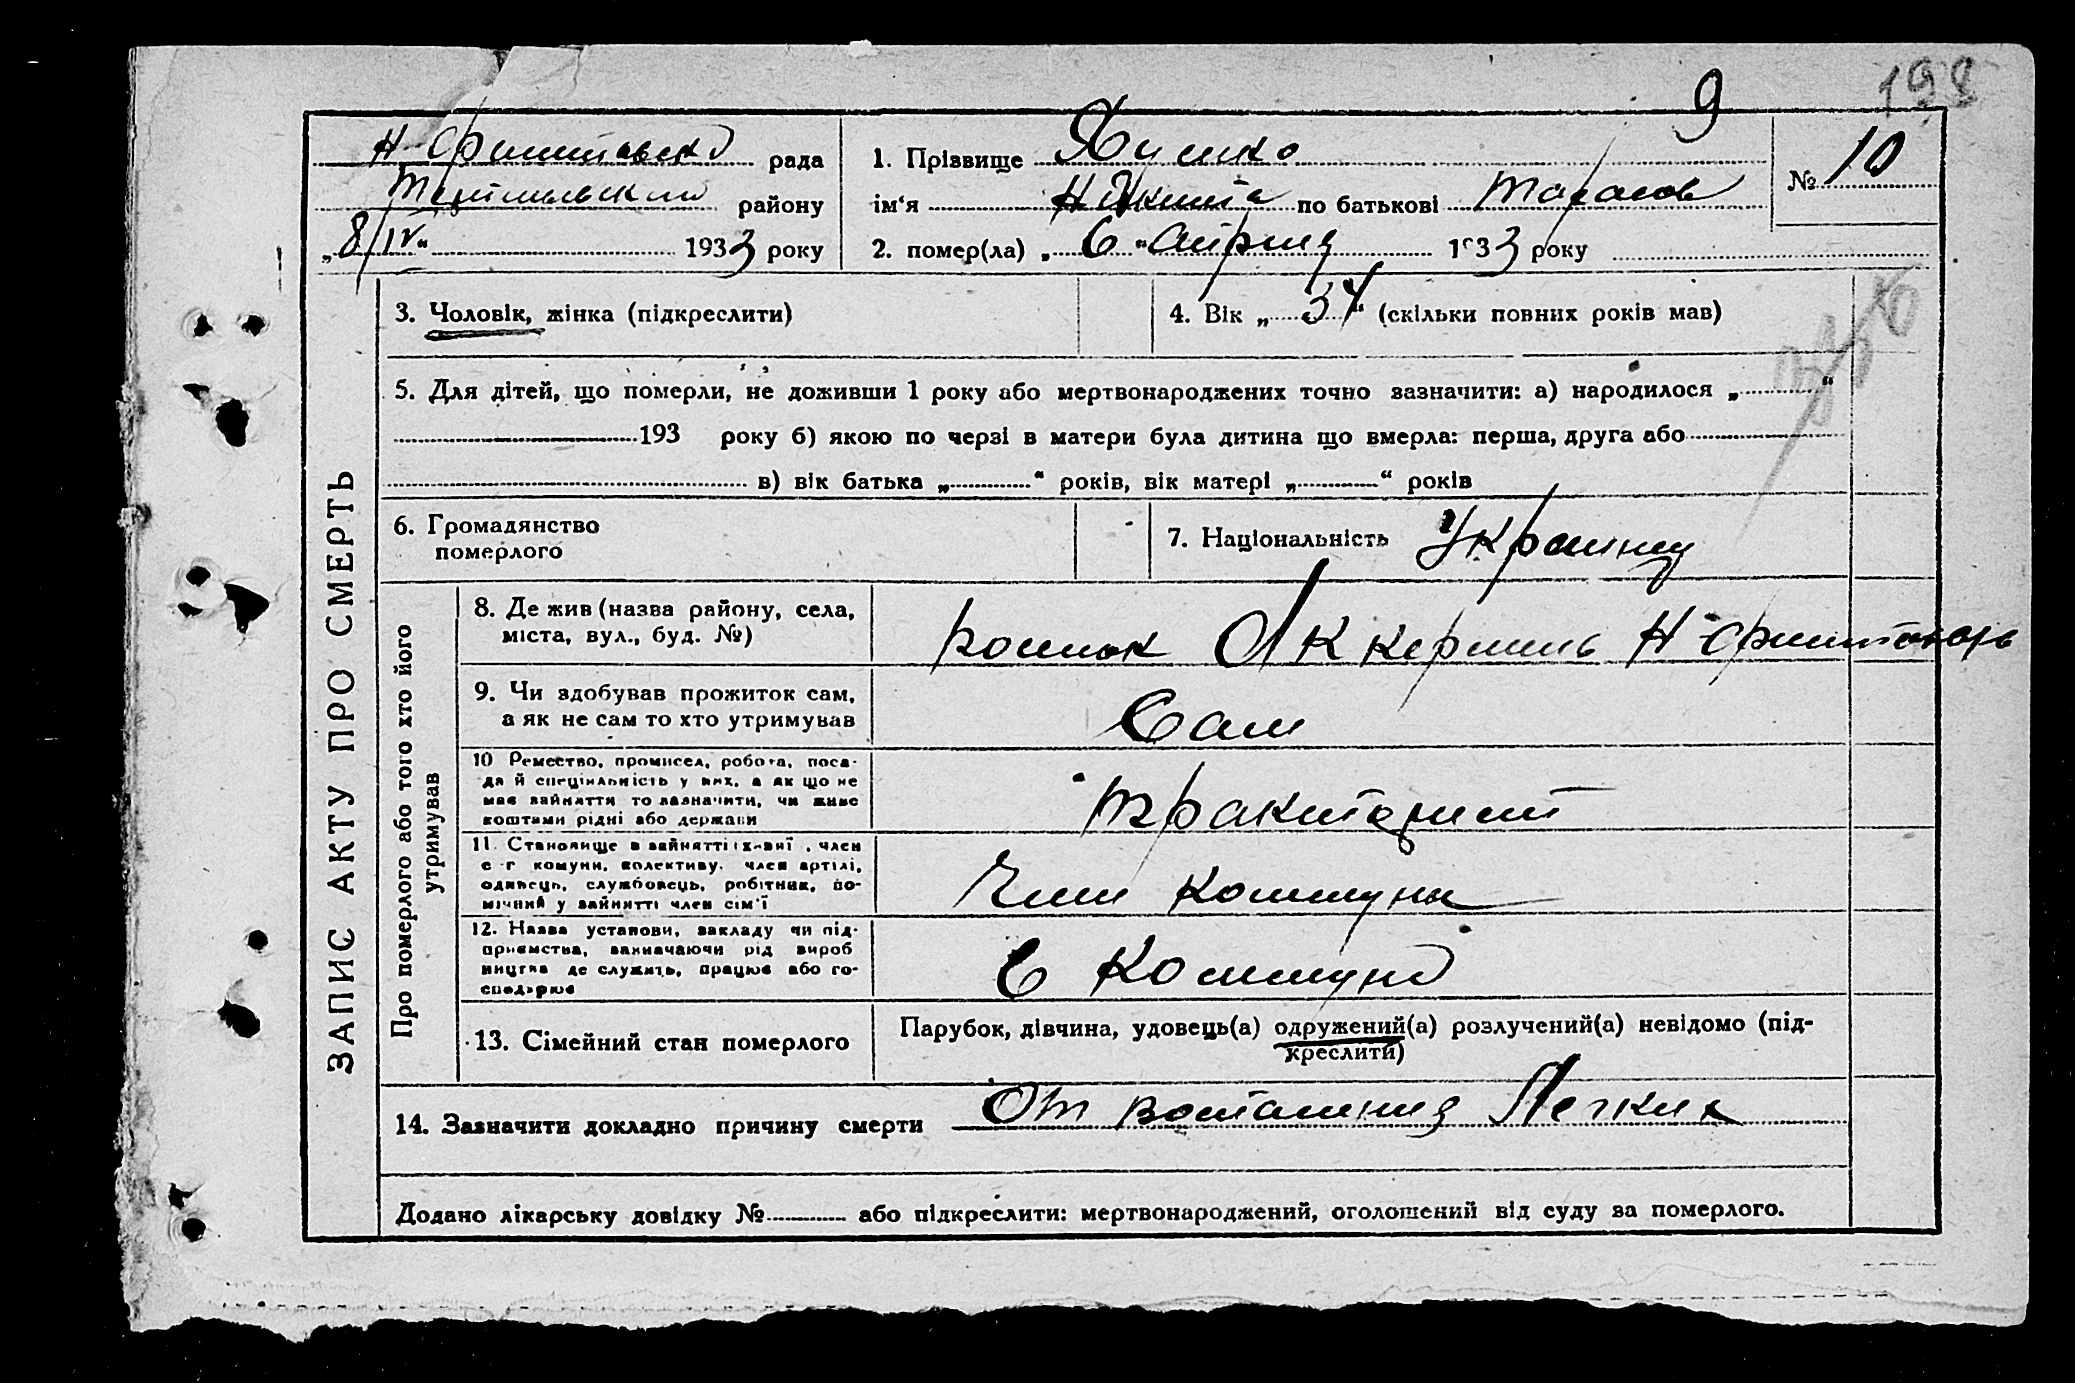 9
198
Н-Фриштовско рада
району
„8/IV“ 1933 року
1. Прізвище Яцико
ім‘я Никита по батькові Тарасов
№ 10
2. помер(ла) „6“ Апреля 1933 року
3. Чоловік, жінка (підкреслити)
4. Вік „34“ (скільки повних років мав)
5. Для дітей, що померли, не доживши 1 року або мертвонароджених точно зазначити: а) народилося „ “
193 року б) якою по черзі в матери була дитина що вмерла: перша, друга або
в) вік батька „ “ років, вік матері „ “ років
6. Громадянство
померлого
7. Національність Украинец
ЗАПИС АКТУ ПРО СМЕРТЬ
Про померлого або того хто його
утримував
8. Де жив (назва району, села,
міста, вул., буд. №)
Аккермень Н-Фриштовск
9. Чи здобував прожиток сам,
а як не сам то хто утримував
Сам
10 Ремество, промисел, робота, поса-
да й спеціяльність у них, а як що не
має зайняття то зазначити, чи живе
коштами рідні або держави
Тракторист
11. Становище в зайнятті , член
с-г комуни, колективу, член артілі,
одинець, службовець, робітник, по-
мічний у зайнятті член сім‘ї
Член Коммуны
12. Назва установи, закладу чи під-
приємства, зазначаючи рід вироб
ництва де служить, працює або го-
сподарює
В Коммуне
13. Сімейний стан померлого
Парубок, дівчина, удовець(а) одружений(а) розлучений(а) невідомо (під-
креслити)
14. Зазначити докладно причину смерти От воспаления Легких
Додано лікарську довідку № або підкреслити: мертвонароджений, оголошений від суду за померлого.